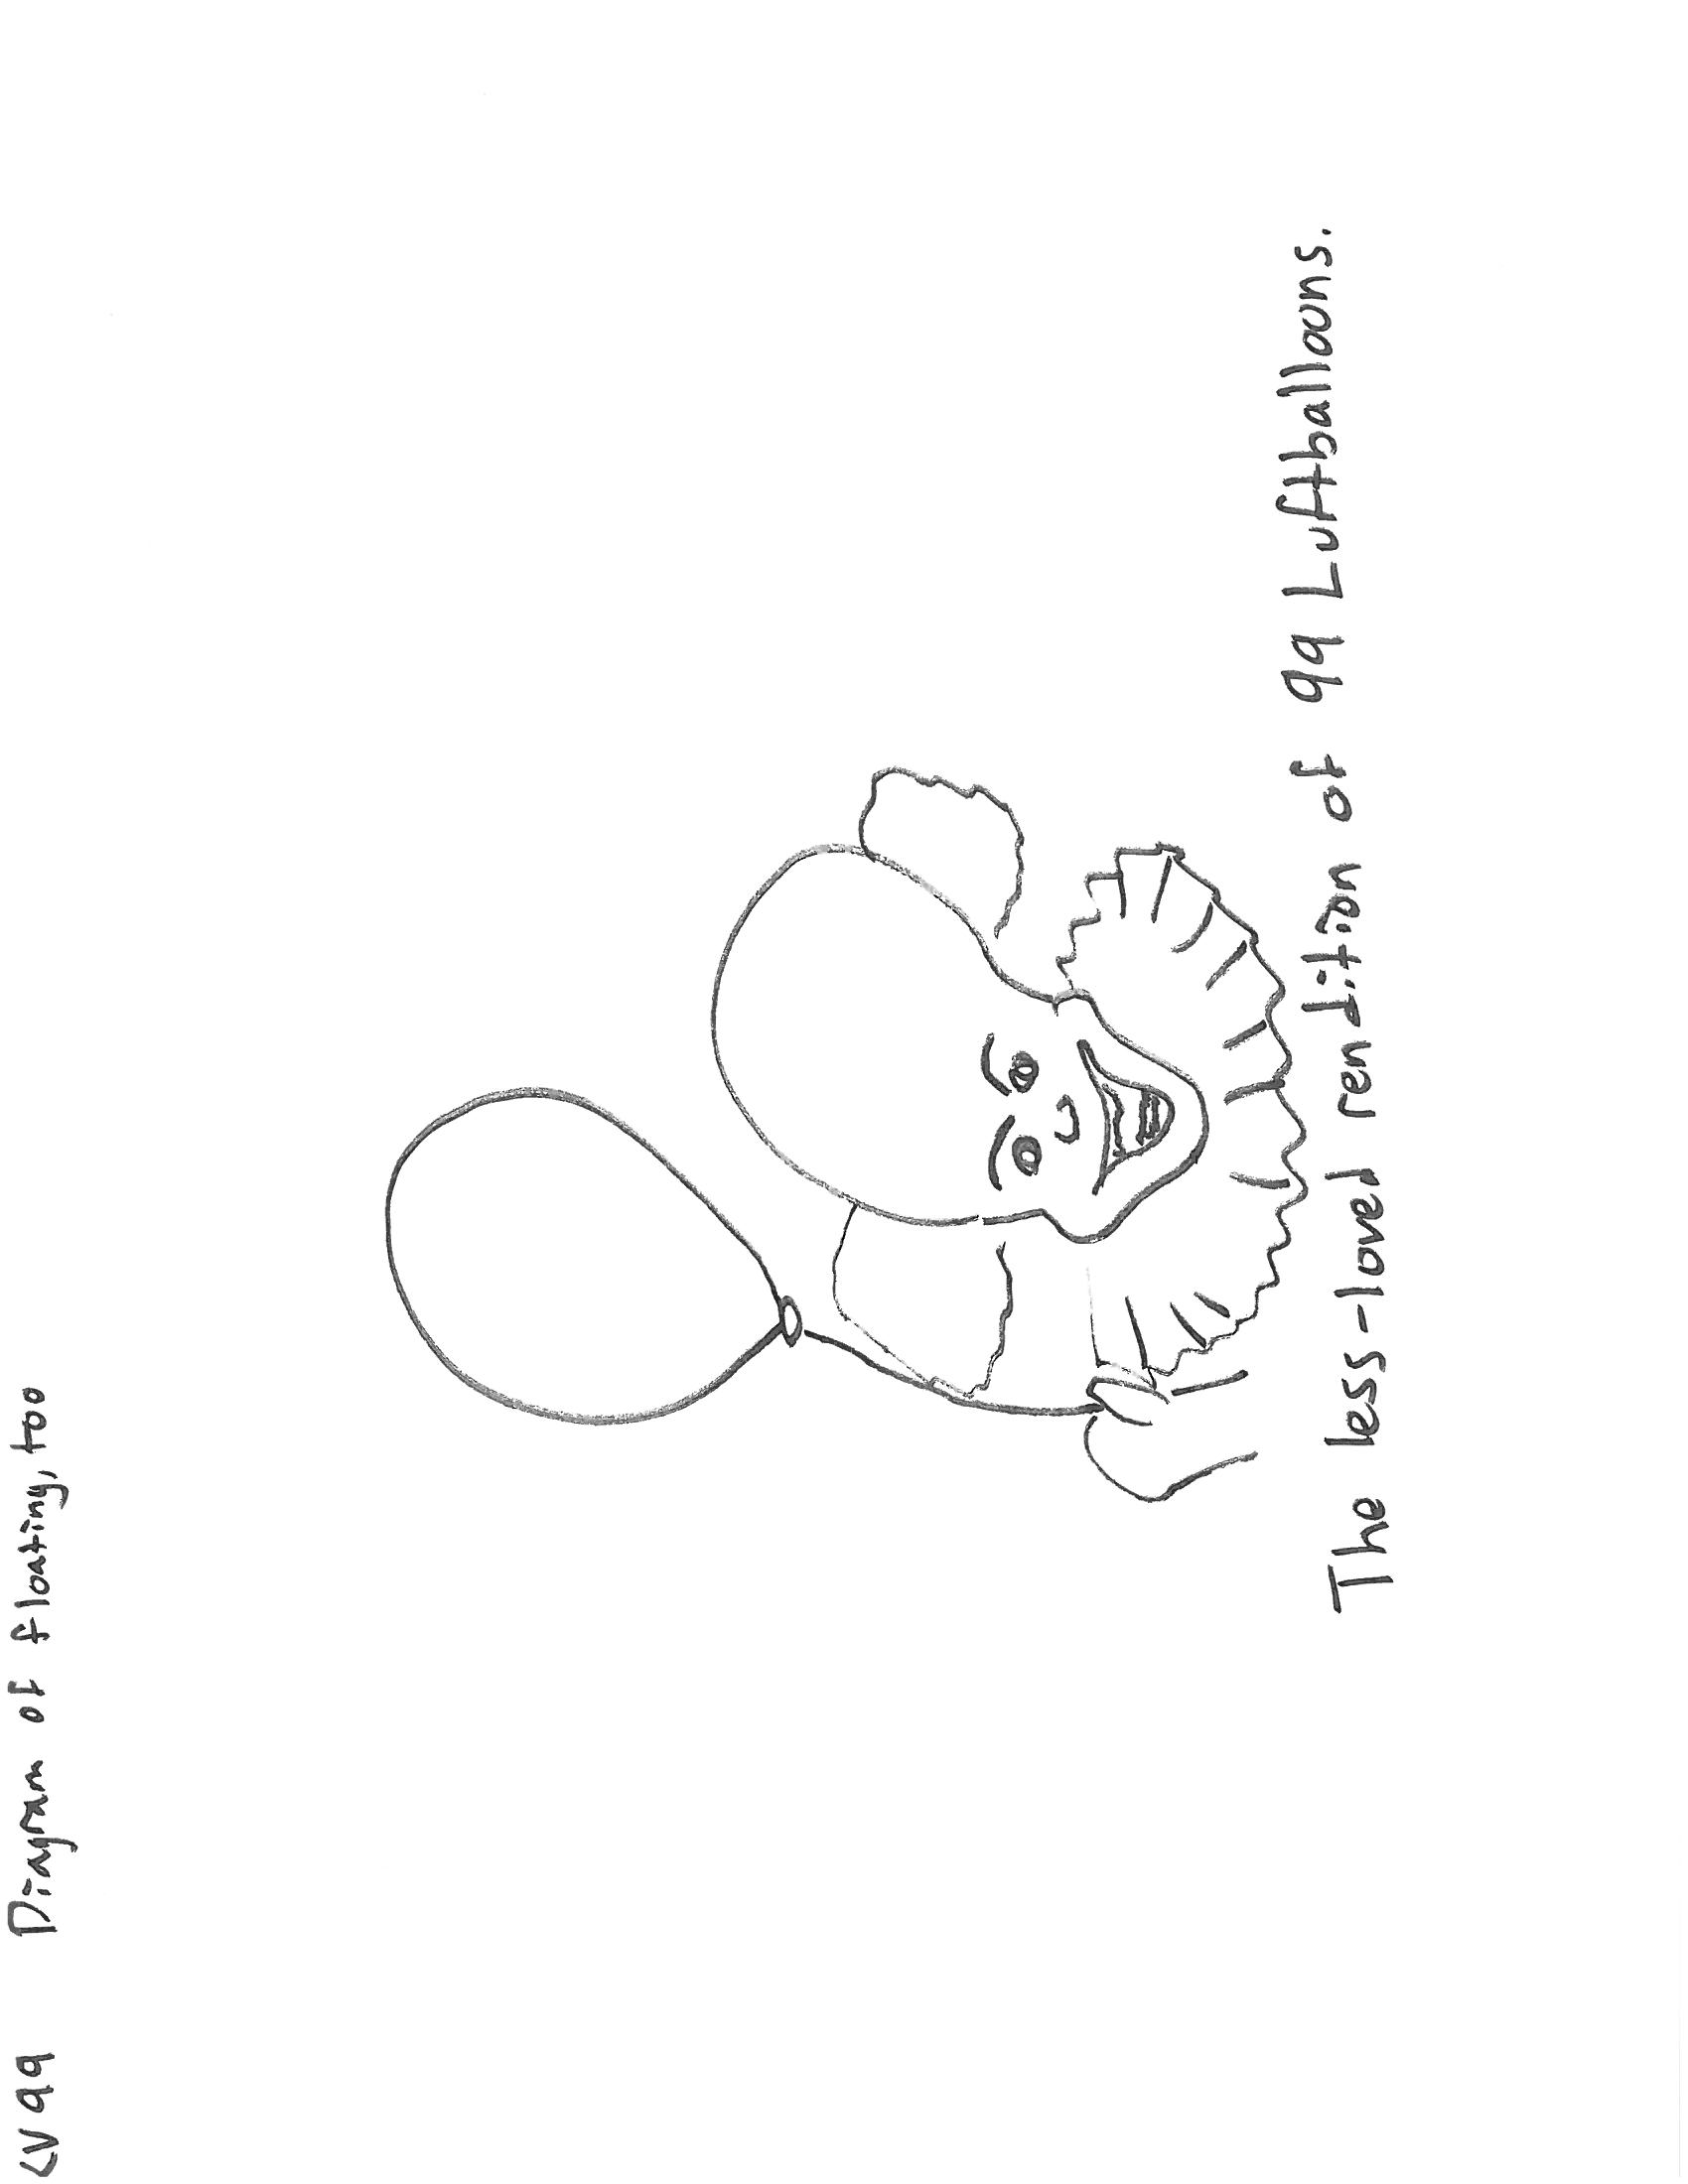 CV99 Diagram of floating, too
The less-loved rendition of 99 Luftballoons.